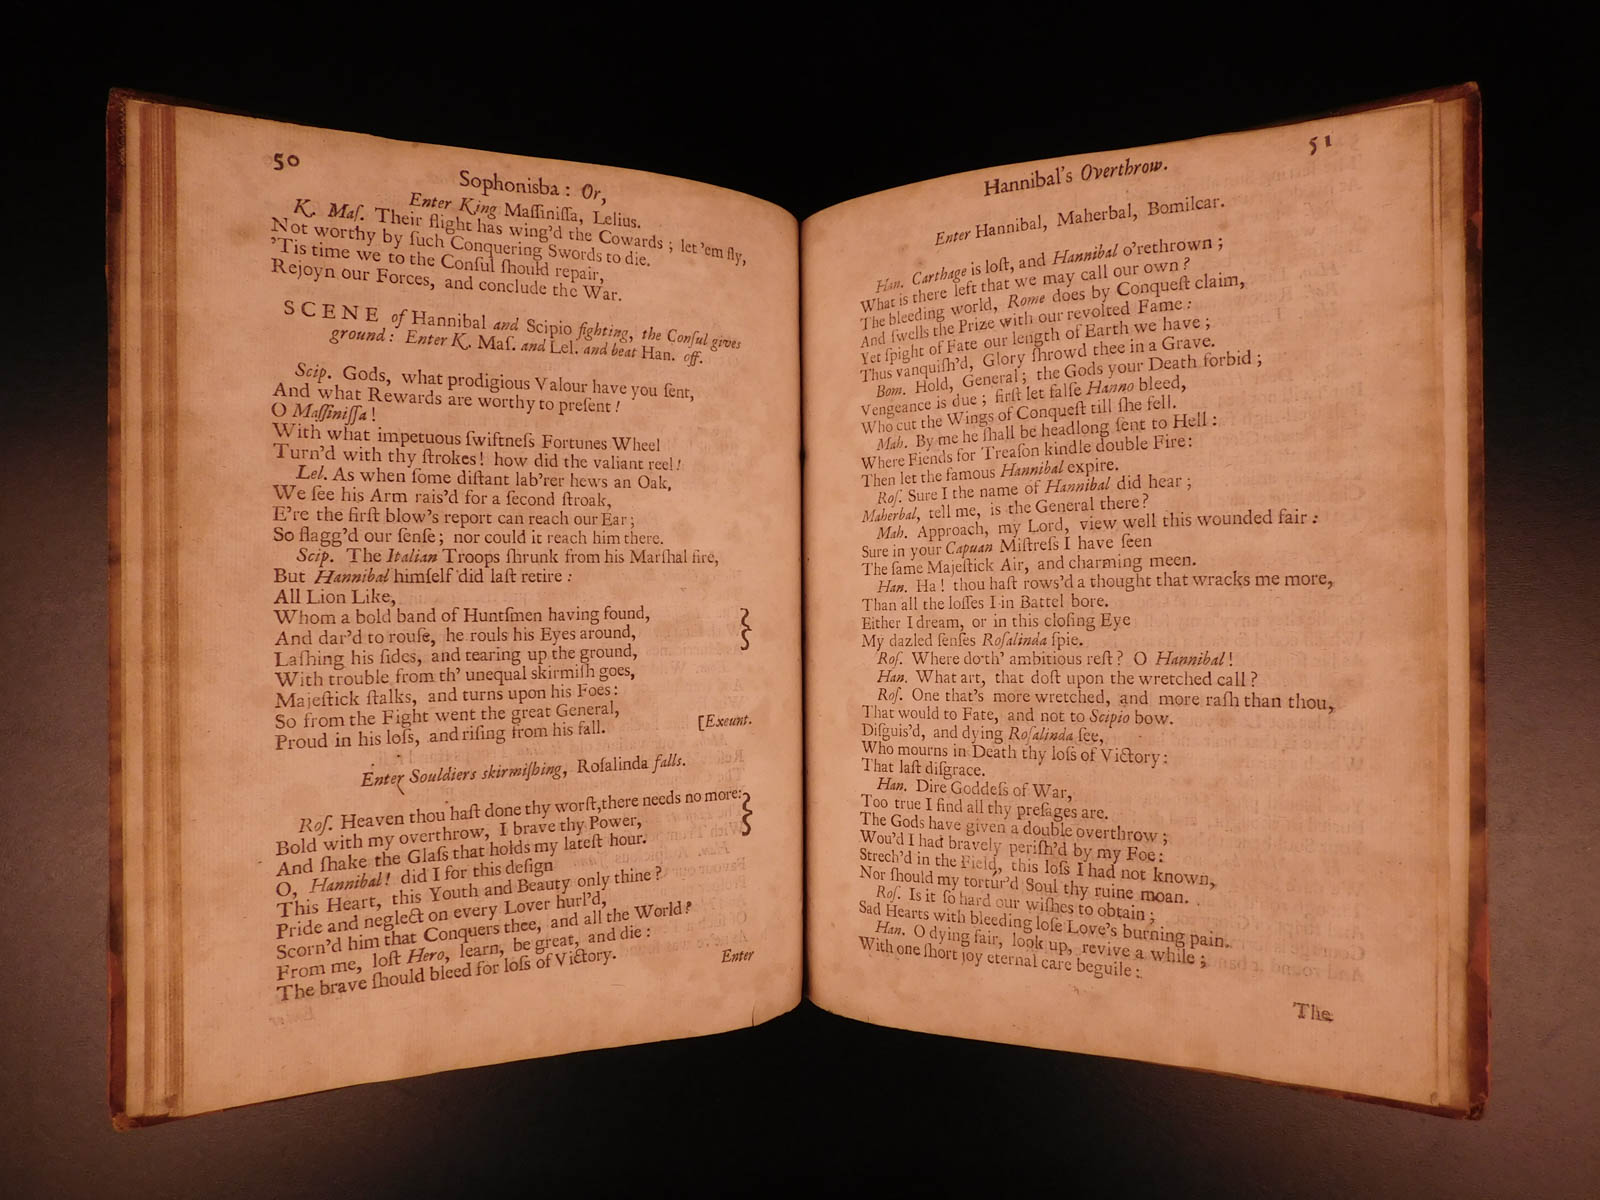 50
Sophonisba: Or,
Enter King Maſſiniſſa, Lelius.
K. Maſ. Their flight has wing'd the Cowards; let 'em fly,
Not worthy by ſuch Conquering Swords to die.
'Tis time we to the Conſul ſhould repair,
Rejoyn our Forces, and conclude the War.
SCENE of Hannibal and Scipio fighting, the Conſul gives
ground: Enter K. Maſ. and Lel. and beat Han. off.
Scip. Gods, what prodigious Valour have you ſent,
And what Rewards are worthy to preſent!
O Maſſiniſſa!
With what impetuous ſwiftneſs Fortunes Wheel
Turn'd with thy ſtrokes! how did the valiant reel!
Lel. As when ſome diſtant lab'rer hews an Oak,
We ſee his Arm rais'd for a ſecond ſtroak,
E're the firſt blow's report can reach our Ear;
So flagg'd our ſenſe; nor could it reach him there.
Scip. The Italian Troops ſhrunk from his Marſhal fire,
But Hannibal himſelf did laſt retire:
All Lion Like,
Whom a bold band of Huntſmen having found,
And dar'd to rouſe, he rouls his Eyes around,
Laſhing his ſides, and tearing up the ground,
With trouble from th' unequal skirmiſh goes,
Majeſtick ſtalks, and turns upon his Foes:
So from the Fight went the great General,
Proud in his loſs, and riſing from his fall. [Exeunt.
Enter Souldiers skirmiſhing, Roſalinda falls.
Roſ. Heaven thou haſt done thy worſt, there needs no more:
Bold with my overthrow, I brave thy Power,
And ſhake the Glaſs that holds my lateſt hour.
O, Hannibal! did I for this deſign
This Heart, this Youth and Beauty only thine?
Pride and neglect on every Lover hurl'd,
Scorn'd him that Conquers thee, and all the World?
From me, loſt Hero, learn, be great, and die:
The brave ſhould bleed for loſs of Victory.
Enter
51
Hannibal's Overthrow.
Enter Hannibal, Maherbal, Bomilcar.
Han. Carthage is loſt, and Hannibal o'rethrown;
What is there left that we may call our own?
The bleeding world, Rome does by Conqueſt claim,
And ſwells the Prize with our revolted Fame:
Yet ſpight of Fate our length of Earth we have;
Thus vanquiſh'd, Glory ſhrowd thee in a Grave.
Bom. Hold, General; the Gods your Death forbid;
Vengeance is due; firſt let falſe Hanno bleed,
Who cut the Wings of Conqueſt till ſhe fell.
Mah. By me he ſhall be headlong ſent to Hell:
Where Fiends for Treaſon kindle double Fire:
Then let the famous Hannibal expire.
Roſ. Sure I the name of Hannibal did hear;
Maherbal, tell me, is the General there?
Mah. Approach, my Lord, view well this wounded fair:
Sure in your Capuan Miſtreſs I have ſeen
The ſame Majeſtick Air, and charming meen.
Han. Ha! thou haſt rows'd a thought that wracks me more,
Than all the loſſes I in Battel bore.
Either I dream, or in this cloſing Eye
My dazled ſenſes Roſalinda ſpie.
Roſ. Where do th' ambitious reſt? O Hannibal!
Han. What art, that doſt upon the wretched call?
Roſ. One that's more wretched, and more raſh than thou,
That would to Fate, and not to Scipio bow.
Diſguis'd, and dying Roſalinda ſee,
Who mourns in Death thy loſs of Victory:
That laſt diſgrace.
Han. Dire Goddeſs of War,
Too true I find all thy preſages are.
The Gods have given a double overthrow;
Wou'd I had bravely periſh'd by my Foe:
Strech'd in the Field, this loſs I had not known,
Nor ſhould my tortur'd Soul thy ruine moan.
Roſ. Is it ſo hard our wiſhes to obtain;
Sad Hearts with bleeding loſe Love's burning pain.
Han. O dying fair, look up, revive a while;
With one ſhort joy eternal care beguile:
The